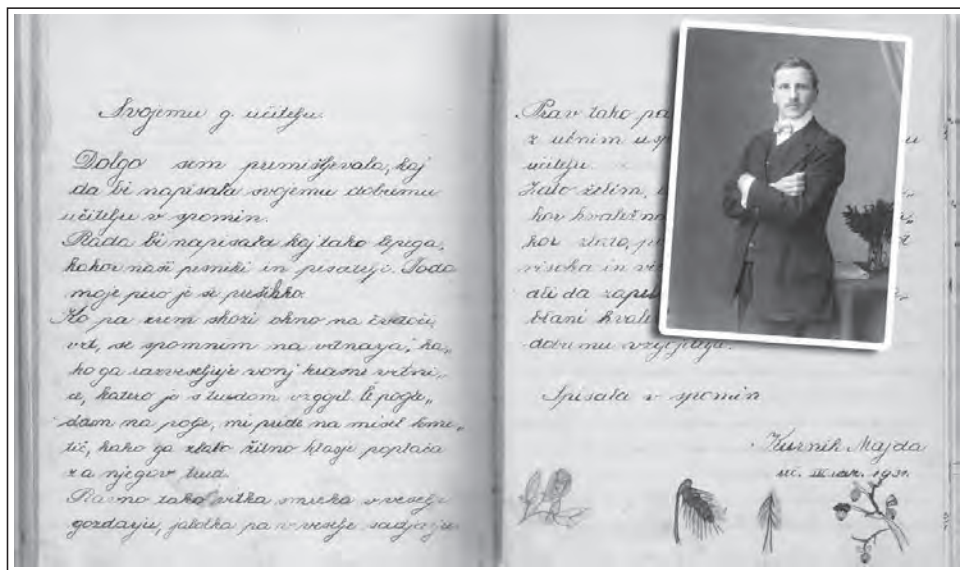 Svojemu g. učitelju.
Dolgo sem premišljevala, kaj
da bi napisala svojemu dobremu
učitelju v spomin.
Rada bi napisala kaj tako lepega,
kakor naši pesniki in pisatelji. Toda
moje pero je še prešibko.
Ko pa zrem skozi okno na cvetoči
vrt, se spomnim na vrtnarja, ka„
ko ga razveseljuje vonj krasne vrtni„
ce, katero je s trudom vzgojil. Če pogle„
dam na polje, mi pride na misel kme„
tič, kako ga zlato žitno klasje poplača
za njegov trud.
Ravno tako vitka smreka v veselje
gozdarju, jablolka pa v veselje sadjarju.
Prav tako pa
z učnim
učitelju.
Zato želim,
kor hvaležno
kor zlato,
visoka in
ali da
hvale
dobremu vzgojitelju.
Spisala v spomin
Kurnik Majda
uč. IV. raz. 1931.